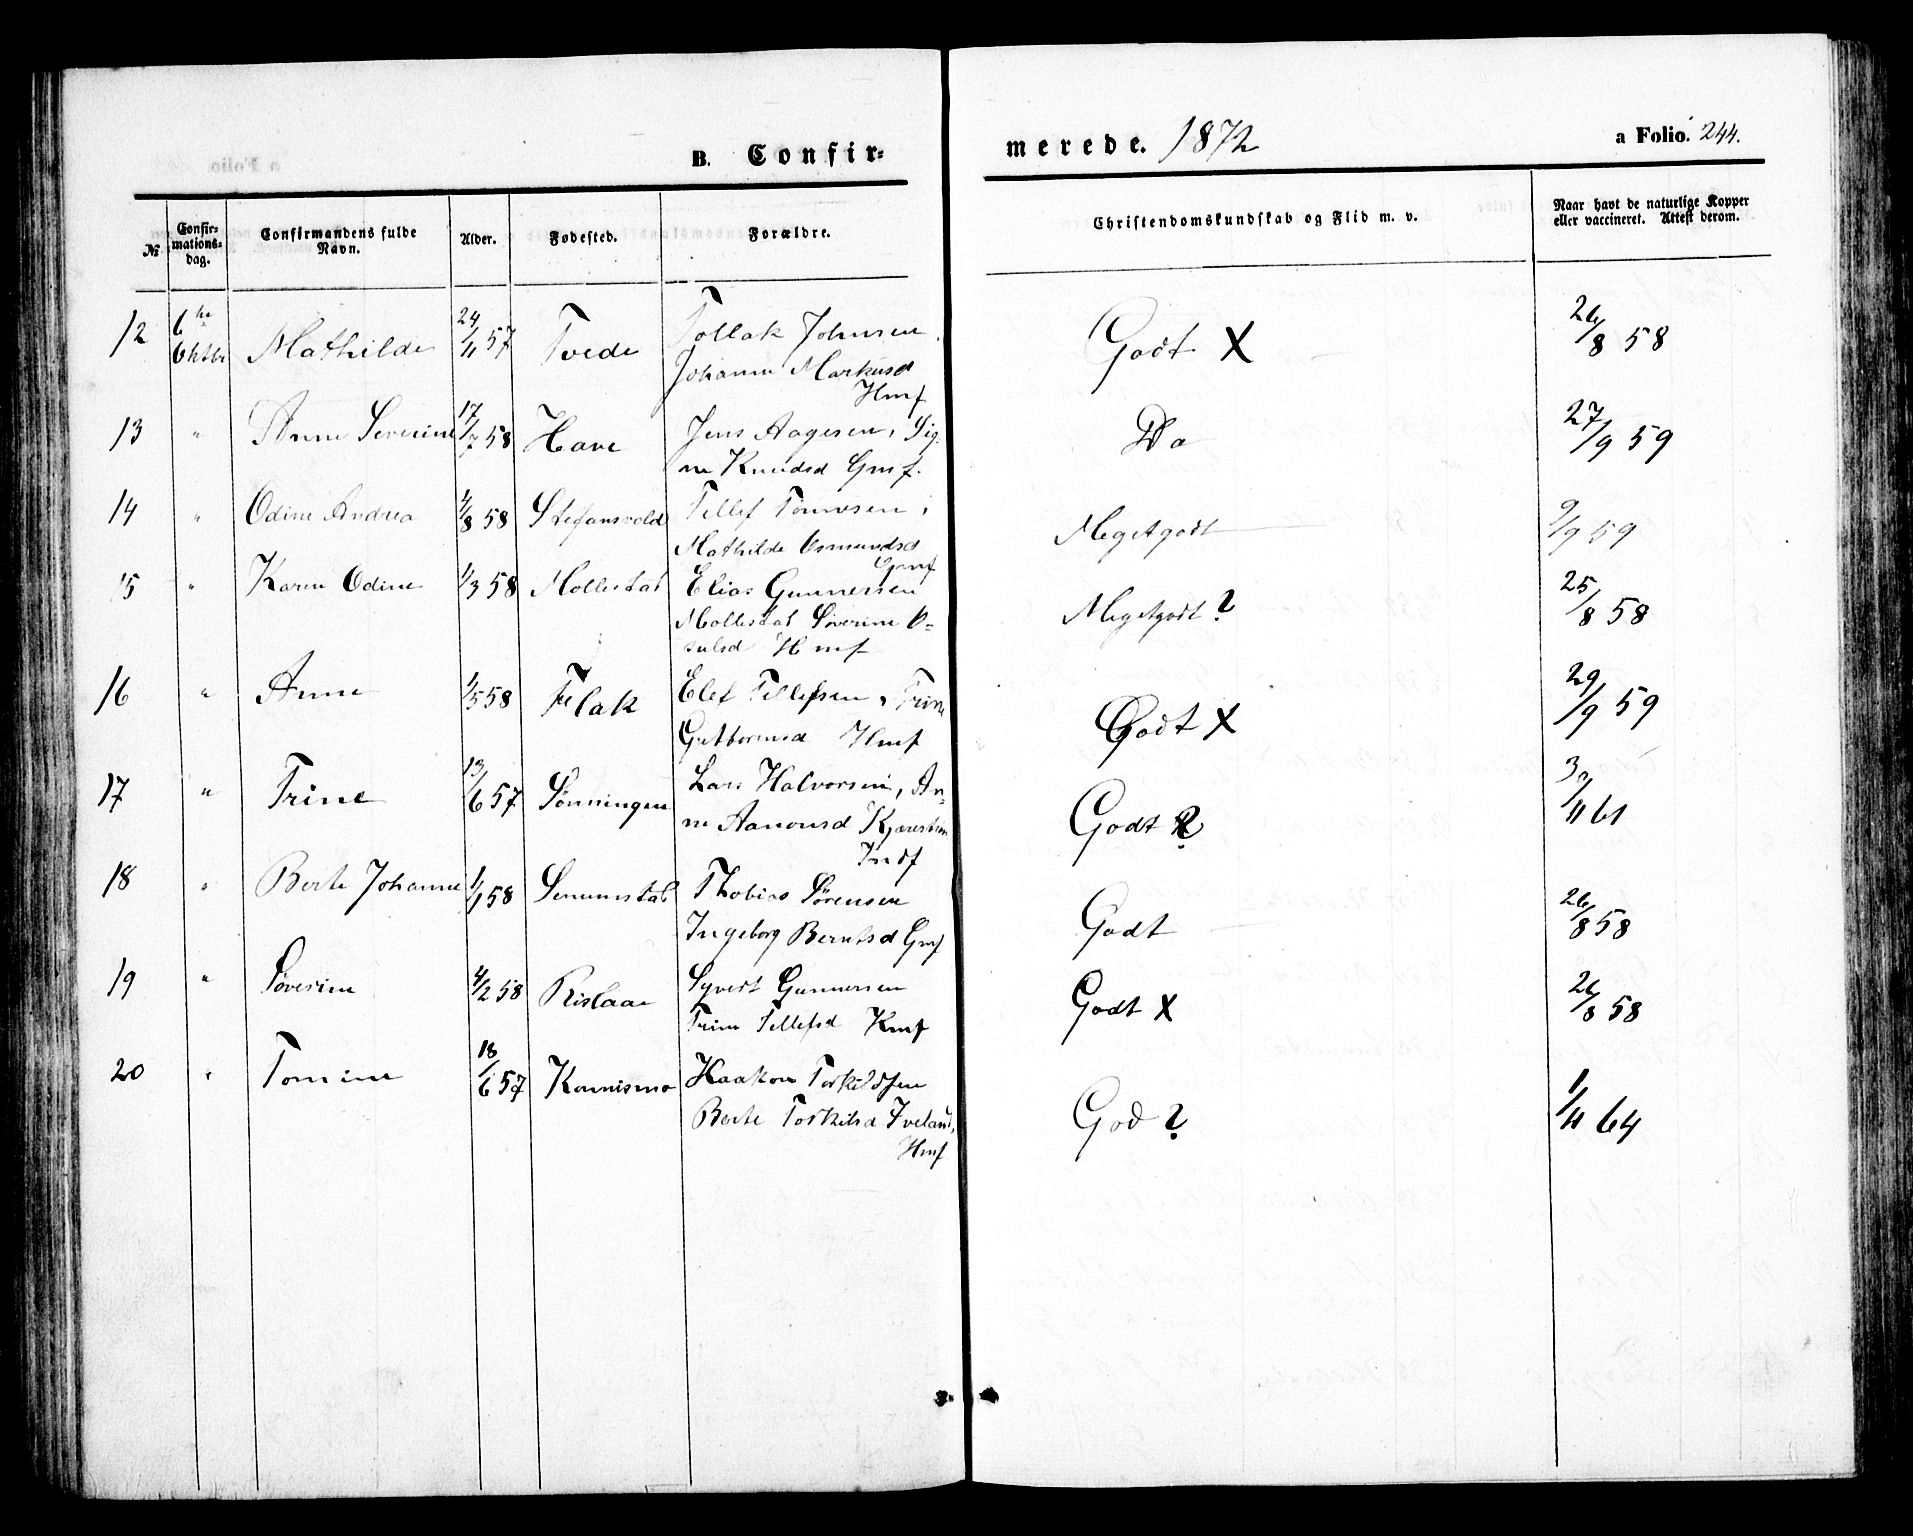 B. Confir-
merede. 1872
a Folio. 244.
№
Confir-
mations-
dag.
Confirmandens fulde
Navn.
Alder.
Fødested.
Forældre.
Christendomskundskab og Flid m. v.
Naar havt de naturlige Kopper
eller vaccineret. Attest derom.
12 6te Mathilde 24/11 57 Tvede Tollak Johnsen, Godt X 26/8 58
Johanne Markusd
Hmf
13 " Anne Severine 17/7 58 Have Jens Aagesen, Sig- Do 27/9 59
ne Knudsd Gmf.
14 " Odine Andrea 1/8 58 Stefansvold Tellef Tønnesen, Megetgodt 9/9 59
Mathilde Osmundsd
Gmf
15 " Karen Odine 1/3 58 Mollestad Elias Gunnersen Megetgodt ? 25/8 58
Mollestad Severine O-
sulsd Hmf
16 " Anne 1/5 58 Flak Elef Tellefsen, Trine Godt X 29/9 59
Gutbormsd Hmf
17 " Trine 13/6 57 Sønningen Lars Halvorsen, An- Godt ? 30/11 61
ne Aanonsd
Indf
18 " Berte Johanne 1/1 58 Senumstad Thobias Sørensen Godt 26/8 58
Ingeborg Berntsd Gmf
19 " Severine 4/2 58 Rislaae Syvert Gunnersen Godt X 26/8 58
Trine Tellefsd Kmf
20 " Tomine 18/6 57 Konnismo Haakon Torkildsen God ? 1/11 64
Berte Torkilsd Iveland,
Hmf